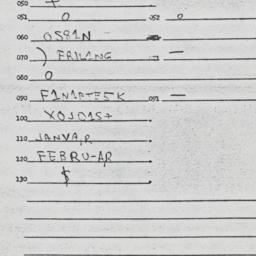 050
051 0 052 0
060 OS81N
070 ) FRILING —
080 0
090 091 —
100
110 JANVA,R
120 FEBRU-AR
130 $